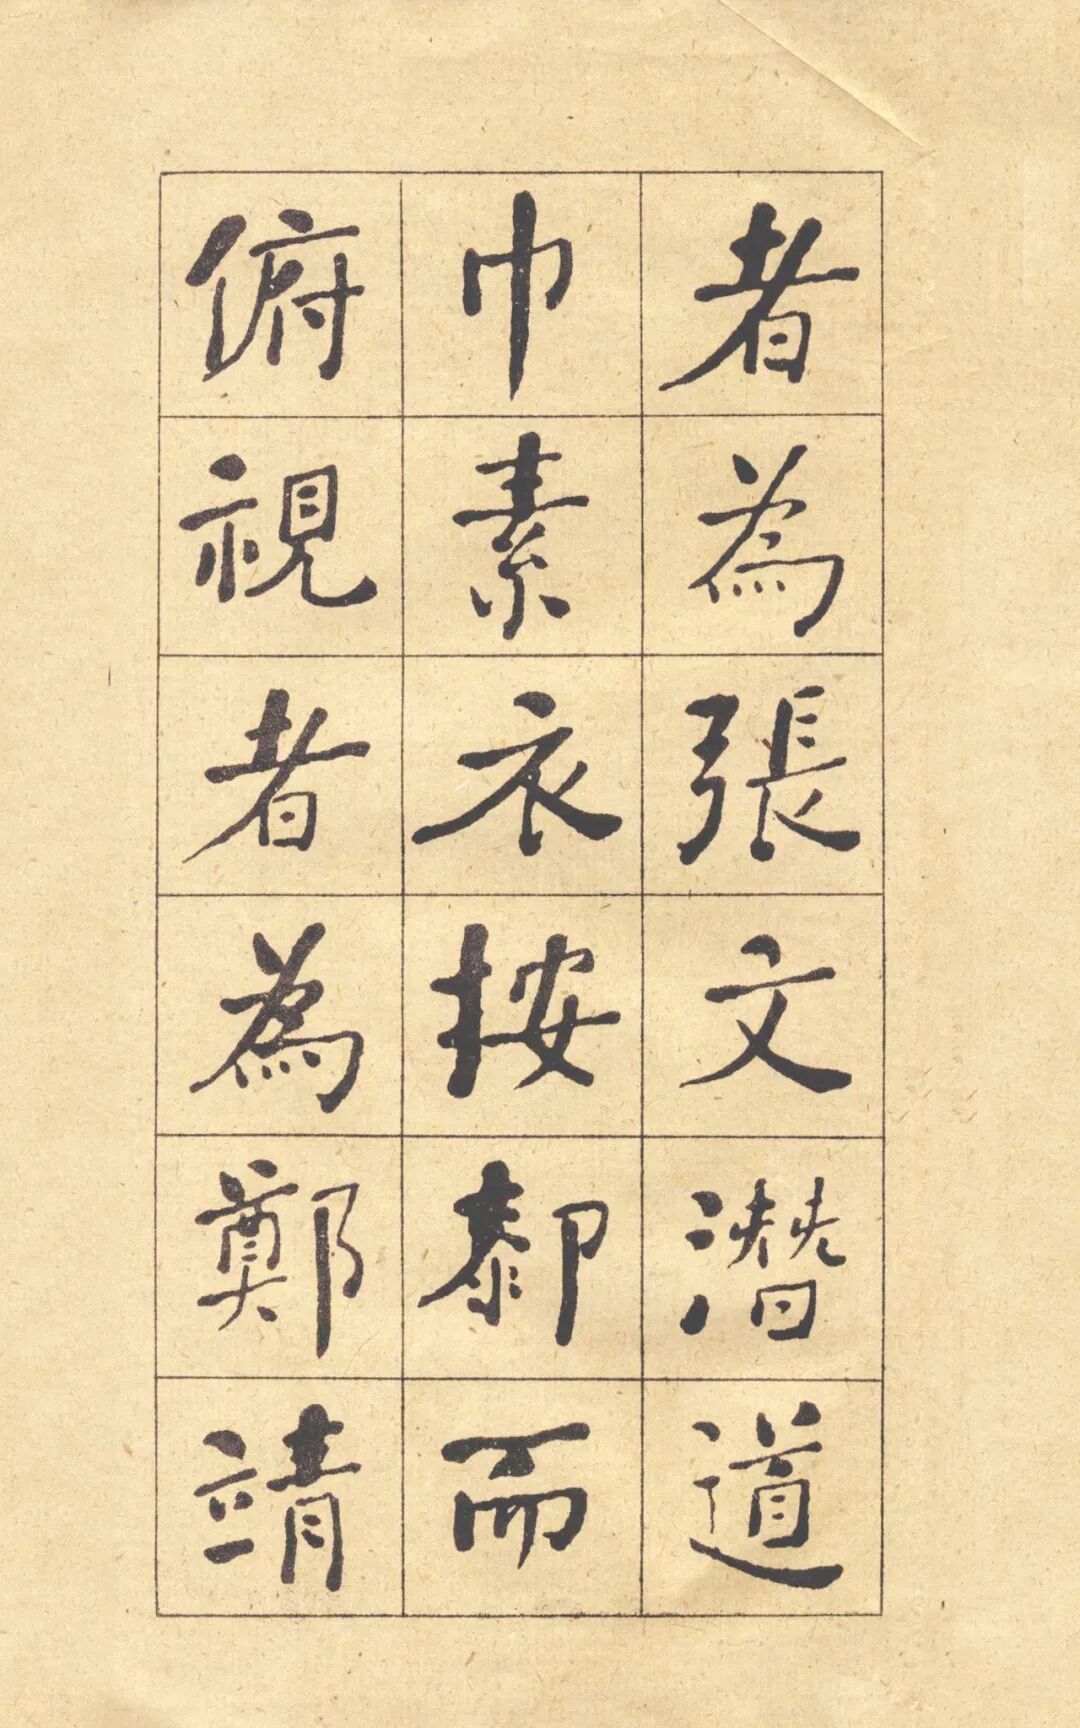 者為張文潛道
巾素衣按厀而
俯視者為鄭靖